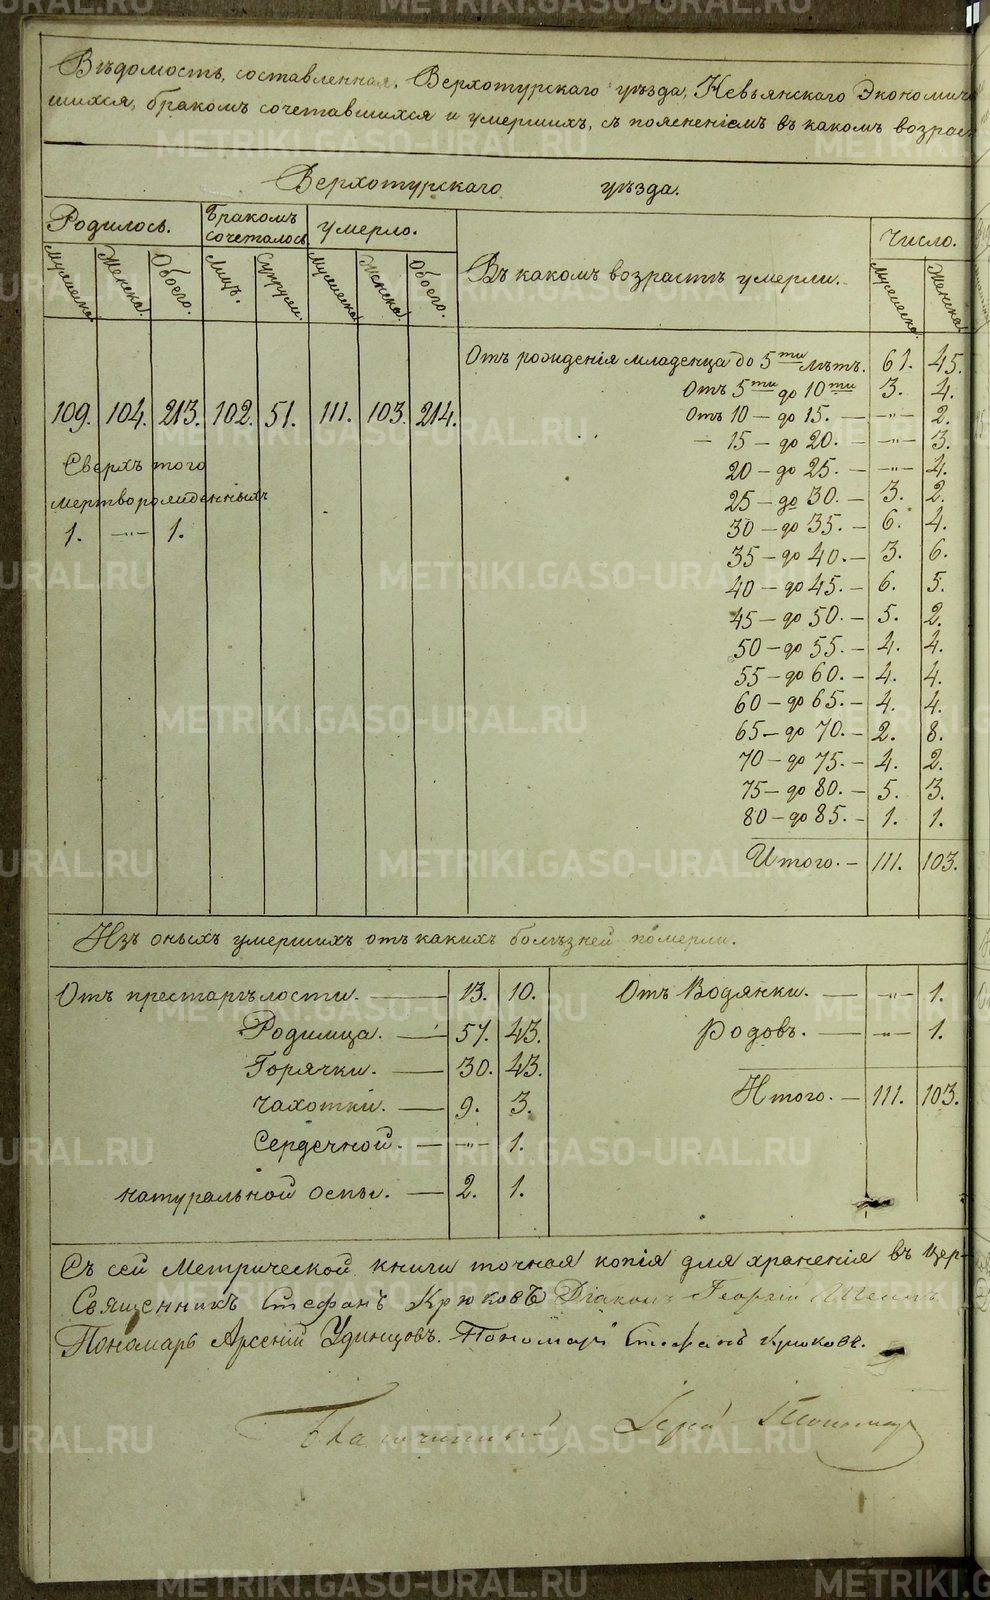 Вѣдомость, составленная, Верхотурскаго уѣзда, Невьянскаго Экономич
шихся, бракомъ сочетавшихся и умершихъ, съ поясненіемъ въ какомъ возрас
Верхотурскаго уѣзда.
Родилось. Бракомъ сочеталось умерло. Въ какомъ возрастѣ умерли. Число.
Мужеска. Женска. Обоего. Лицъ. Супруж. Мужеска. Женска. Обоего. Мужеска. Женска.
109. 104. 213. 102. 51. 111. 103. 214.
Сверхъ того
мертворожденныхъ
1. —"— 1.
Отъ рожденія младенца до 5ти лѣтъ. 61. 45.
Отъ 5ти до 10ти 3. 4.
Отъ 10 — до 15. — —"— 2.
— 15 — до 20. — —"— 3.
20 — до 25. — —"— 4.
25 — до 30. — 3. 2.
30 — до 35. — 6. 4.
35 — до 40. — 3. 6.
40 — до 45. — 6. 5.
45 — до 50. — 5. 2.
50 — до 55. — 4. 4.
55 — до 60. — 4. 4.
60 — до 65. — 4. 4.
65 — до 70. — 2. 8.
70 — до 75. — 4. 2.
75 — до 80. — 5. 3.
80 — до 85. — 1. 1.
Итого. — 111. 103.
Изъ оныхъ умершихъ отъ какихъ болѣзней померли.
Отъ престарѣлости. — 13. 10.
Родимца. — 57. 43.
Горячки. — 30. 43.
Чахотки. — 9. 3.
Сердечной. — —"— 1.
натуральной оспы. — 2. 1.
Отъ Водянки. — —"— 1.
Родовъ. — —"— 1.
Итого. — 111. 103.
Съ сей Метрической книги точная копія для храненія въ цер-
Священникъ Стефанъ Крюковъ Діаконъ Георгій
Пономарь Арсеній Удинцовъ. Пономарь Стефанъ Крюковъ.
Благочинный Іерей
METRIKI.GASO-URAL.RU